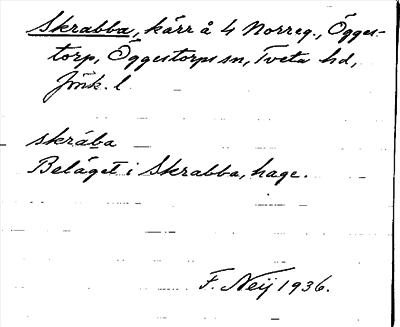 Skrabba, kärr å 4 Norreg., Ögges-
torp, Öggestorps sn, Tveta hd,
Jönk. l.
skråba
Beläget i Skrabba, hage.
F. Neij 1936.